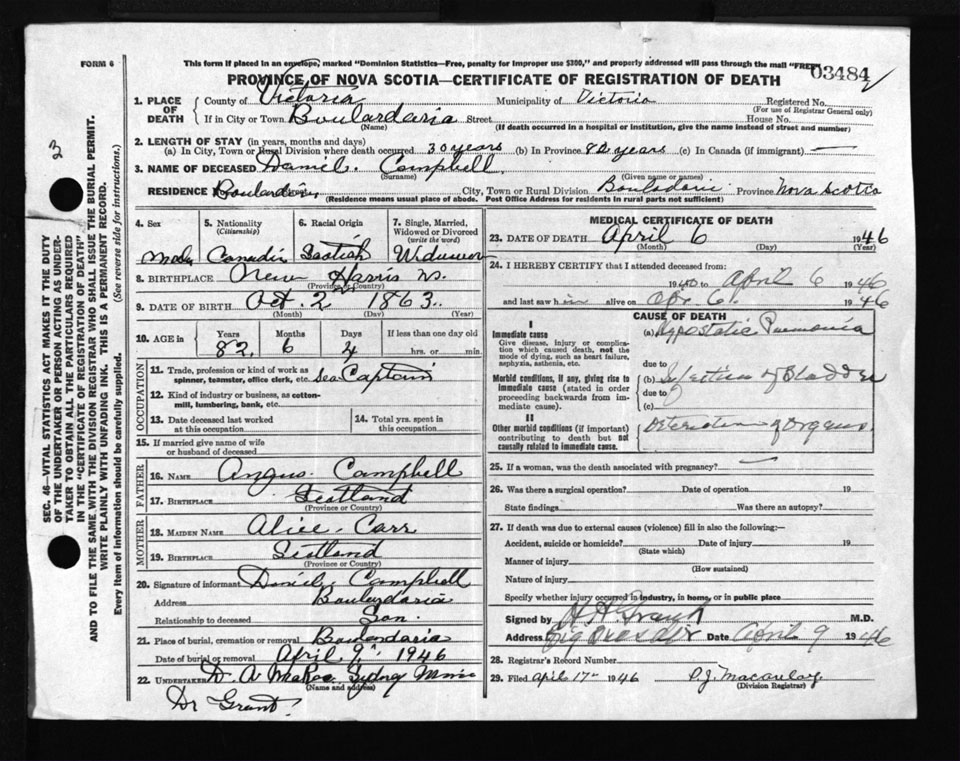 FORM 6
This form if placed in an envelope, marked "Dominion Statistics—Free, penalty for improper use $300," and properly addressed will pass through the mail "FREE"
03484
PROVINCE OF NOVA SCOTIA—CERTIFICATE OF REGISTRATION OF DEATH
1. PLACE OF DEATH
County of Victoria Municipality of Victoria Registered No.
(For use of Registrar General only)
If in City or Town Boulardaria Street House No.
(Name) (If death occurred in a hospital or institution, give the name instead of street and number)
2. LENGTH OF STAY (in years, months and days)
(a) In City, Town or Rural Division where death occurred 30 years (b) In Province 82 years (c) In Canada (if immigrant) —
3. NAME OF DECEASED Daniel. Campbell.
(Surname) (Given name or names)
RESIDENCE City, Town or Rural Division Province Nova Scotia
(Residence means usual place of abode. Post Office Address for residents in rural parts not sufficient)
4. Sex
5. Nationality (Citizenship)
6. Racial Origin
7. Single, Married, Widowed or Divorced (write the word)
8. BIRTHPLACE New Harris
(Province or Country)
9. DATE OF BIRTH Oct. 2 1863.
(Month) (Day) (Year)
10. AGE in Years Months Days If less than one day old
82 6 4 hrs. or min.
OCCUPATION
11. Trade, profession or kind of work as spinner, teamster, office clerk, etc. Sea Captain
12. Kind of industry or business, as cotton-mill, lumbering, bank, etc.
13. Date deceased last worked at this occupation
14. Total yrs. spent in this occupation
15. If married give name of wife or husband of deceased
FATHER
16. NAME Angus. Campbell
17. BIRTHPLACE Scotland
(Province or Country)
MOTHER
18. MAIDEN NAME Alice. Carr
19. BIRTHPLACE Scotland
(Province or Country)
20. Signature of informant Daniel Campbell
Address Boulardaria
Relationship to deceased Son.
21. Place of burial, cremation or removal Boulardaria
Date of burial or removal April 9 1946
22. UNDERTAKER D. A. McRae Sydney Mines
(Name and address)
Dr Grant.
MEDICAL CERTIFICATE OF DEATH
23. DATE OF DEATH April 6 1946
(Month) (Day) (Year)
24. I HEREBY CERTIFY that I attended deceased from
1940 to April 6 1946
and last saw him alive on Apr. 6. 1946
CAUSE OF DEATH
I
Immediate cause
Give disease, injury or complication which caused death, not the mode of dying, such as heart failure, asphyxia, asthenia, etc.
(a) Hypostatic Pneumonia
due to
Morbid conditions, if any, giving rise to immediate cause (stated in order proceeding backwards from immediate cause).
(b) Infection of Bladder
due to
(c)
II
Other morbid conditions (if important) contributing to death but not causally related to immediate cause.
of Organs
25. If a woman, was the death associated with pregnancy? —
26. Was there a surgical operation? Date of operation 19
State findings Was there an autopsy?
27. If death was due to external causes (violence) fill in also the following:—
Accident, suicide or homicide? Date of injury 19
(State which)
Manner of injury
(How sustained)
Nature of injury
Specify whether injury occurred in industry, in home, or in public place
Signed by M.D.
Address Date April 9 1946
28. Registrar's Record Number
29. Filed April 17 1946 P.J. Macaulay
(Division Registrar)
SEC. 46—VITAL STATISTICS ACT MAKES IT THE DUTY
OF THE UNDERTAKER OR PERSON ACTING AS UNDER-
TAKER TO OBTAIN ALL THE PARTICULARS REQUIRED
IN THE "CERTIFICATE OF REGISTRATION OF DEATH"
AND TO FILE THE SAME WITH THE DIVISION REGISTRAR WHO SHALL ISSUE THE BURIAL PERMIT.
WRITE PLAINLY WITH UNFADING INK. THIS IS A PERMANENT RECORD.
Every item of information should be carefully supplied. (See reverse side for instructions.)